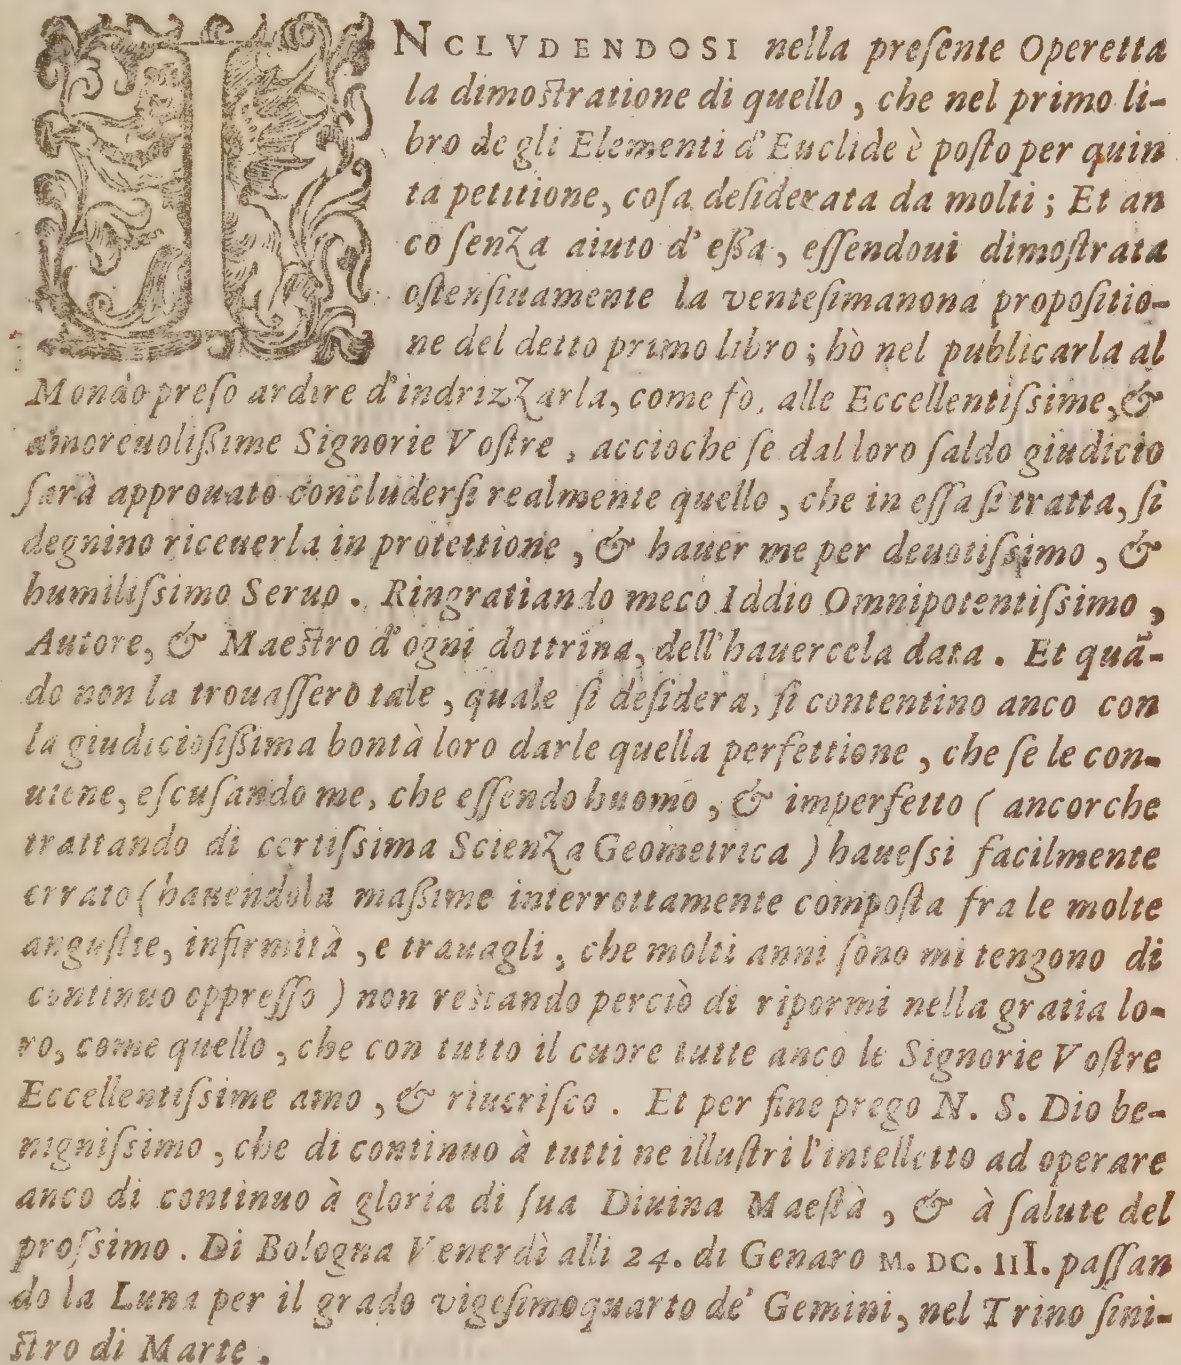 INCLVDENDOSI nella preſente Operetta
la dimoſtratione di quello, che nel primo li-
bro de gli Elementi d'Euclide è poſto per quin
ta petitione, coſa deſiderata da molti; Et an
co ſenza aiuto d'eßa, eſſendoui dimoſtrata
oſtenſiuamente la venteſimanona propoſitio-
ne del detto primo libro; hò nel publicarla al
Mondo preſo ardire d'indrizzarla, come fò, alle Eccellentiſsime, &
amoreuolißime Signorie Voſtre, accioche ſe dal loro ſaldo giudicio
ſarà approuato concluderſi realmente quello, che in eſſa ſi tratta, ſi
degnino riceuerla in protettione, & hauer me per deuotiſsimo, &
humiliſsimo Seruo. Ringratiando meco Iddio Omnipotentiſsimo,
Autore, & Maeſtro d'ogni dottrina, dell'hauercela data. Et quã-
do non la trouaſſero tale, quale ſi deſidera, ſi contentino anco con
la giudicioſißima bontà loro darle quella perfettione, che ſe le con-
uiene, eſcuſando me, che eſſendo huomo, & imperfetto (ancorche
trattando di certiſsima Scienza Geometrica) haueſsi facilmente
errato (hauendola maßime interrottamente compoſta fra le molte
anguſtie, infirmità, e trauagli, che molti anni ſono mi tengono di
continuo oppreſſo) non reſtando perciò di ripormi nella gratia lo-
ro, come quello, che con tutto il cuore tutte anco le Signorie Voſtre
Eccellentiſsime amo, & riueriſco. Et per fine prego N. S. Dio be-
nigniſsimo, che di continuo à tutti ne illuſtri l'intelletto ad operare
anco di continuo à gloria di ſua Diuina Maeſtà, & à ſalute del
proſsimo. Di Bologna Venerdì alli 24. di Genaro M. DC. III. paſſan
do la Luna per il grado vigeſimoquarto de' Gemini, nel Trino ſini-
ſtro di Marte.